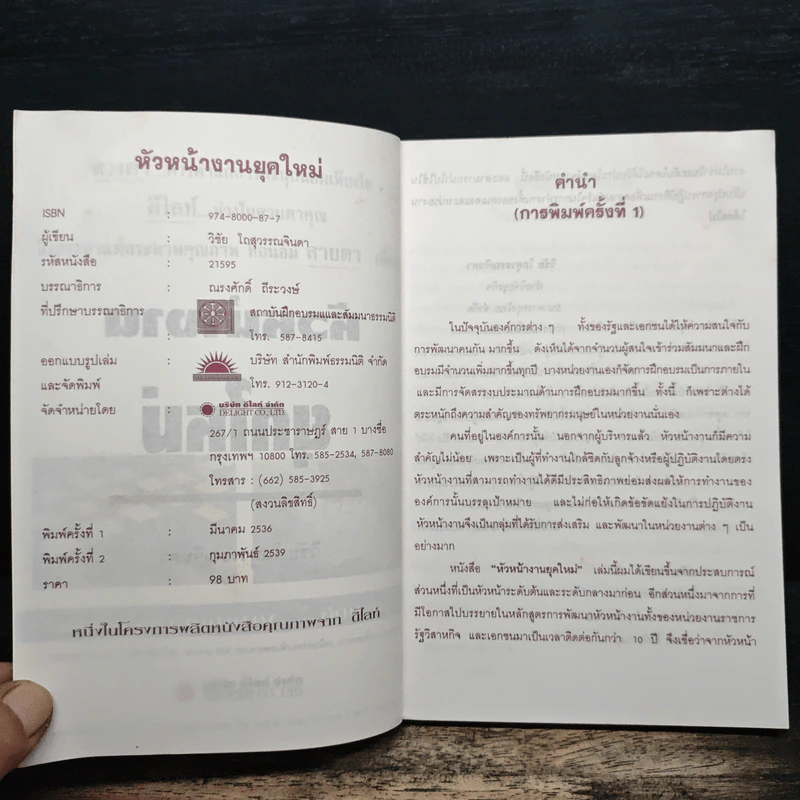 หัวหน้างานยุคใหม่
ISBN : 974-8000-87-7
ผู้เขียน : วิชัย โถสุวรรณจินดา
รหัสหนังสือ : 21595
บรรณาธิการ : ณรงศักดิ์ ถีระวงษ์
ที่ปรึกษาบรรณาธิการ : สถาบันฝึกอบรมและสัมมนาธรรมนิติ
โทร. 587-8415
ออกแบบรูปเล่ม : บริษัท สำนักพิมพ์ธรรมนิติ จำกัด
และจัดพิมพ์ โทร. 912-3120-4
จัดจำหน่ายโดย : บริษัท ดีไลท์ จำกัด
DELIGHT CO., LTD.
267/1 ถนนประชาราษฎร์ สาย 1 บางซื่อ
กรุงเทพฯ 10800 โทร. 585-2534, 587-8080
โทรสาร : (662) 585-3925
(สงวนลิขสิทธิ์)
พิมพ์ครั้งที่ 1 : มีนาคม 2536
พิมพ์ครั้งที่ 2 : กุมภาพันธ์ 2539
ราคา : 98 บาท
หนึ่งในโครงการผลิตหนังสือคุณภาพจาก ดีไลท์
คำนำ
(การพิมพ์ครั้งที่ 1)
ในปัจจุบันองค์การต่าง ๆ ทั้งของรัฐและเอกชนได้ให้ความสนใจกับ
การพัฒนาคนกัน มากขึ้น ดังเห็นได้จากจำนวนผู้สนใจเข้าร่วมสัมมนาและฝึก
อบรมมีจำนวนเพิ่มมากขึ้นทุกปี บางหน่วยงานเองก็จัดการฝึกอบรมเป็นการภายใน
และมีการจัดสรรงบประมาณด้านการฝึกอบรมมากขึ้น ทั้งนี้ ก็เพราะต่างได้
ตระหนักถึงความสำคัญของทรัพยากรมนุษย์ในหน่วยงานนั่นเอง
คนที่อยู่ในองค์การนั้น นอกจากผู้บริหารแล้ว หัวหน้างานก็มีความ
สำคัญไม่น้อย เพราะเป็นผู้ที่ทำงานใกล้ชิดกับลูกจ้างหรือผู้ปฏิบัติงานโดยตรง
หัวหน้างานที่สามารถทำงานได้ดีมีประสิทธิภาพย่อมส่งผลให้การทำงานของ
องค์การนั้นบรรลุเป้าหมาย และไม่ก่อให้เกิดข้อขัดแย้งในการปฏิบัติงาน
หัวหน้างานจึงเป็นกลุ่มที่ได้รับการส่งเสริม และพัฒนาในหน่วยงานต่าง ๆ เป็น
อย่างมาก
หนังสือ "หัวหน้างานยุคใหม่" เล่มนี้ผมได้เขียนขึ้นจากประสบการณ์
ส่วนหนึ่งที่เป็นหัวหน้าระดับต้นและระดับกลางมาก่อน อีกส่วนหนึ่งมาจากการที่
มีโอกาสไปบรรยายในหลักสูตรการพัฒนาหัวหน้างานทั้งของหน่วยงานราชการ
รัฐวิสาหกิจ และเอกชนมาเป็นเวลาติดต่อกันกว่า 10 ปี จึงเชื่อว่าจากหัวหน้า